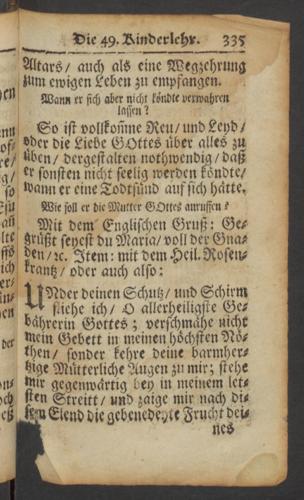 Die 49. Kinderlehr. 335
Altars/ auch als eine Wegzehrung
zum ewigen Leben zu empfangen.
Wann er sich aber nicht köndte verwahren
lassen?
So ist vollkom̅ne Reu/ und Leyd/
oder die Liebe GOttes über alles zu
üben/ dergestalten nothwendig/ daß
er sonsten nicht seelig werden köndte/
wann er eine Todtsünd auf sich hätte.
Wie soll er die Mutter GOttes anruffen?
Mit dem Englischen Gruß: Ge-
grüßt seyest du Maria/ voll der Gna-
den/ ꝛc. Item: mit dem Heil. Rosen-
krantz/ oder auch also:
UNder deinen Schutz/ und Schirm
fliehe ich/ O allerheiligste Ge-
bährerin Gottes; verschmähe nicht
mein Gebett in meinen höchsten Nö-
then/ sonder kehre deine barmher-
tzige Mütterliche Augen zu mir; stehe
mir gegenwärtig bey in meinem letz-
sten Streitt/ und zaige mir nach di-
sem Elend die gebenedeyte Frucht dei-
nes